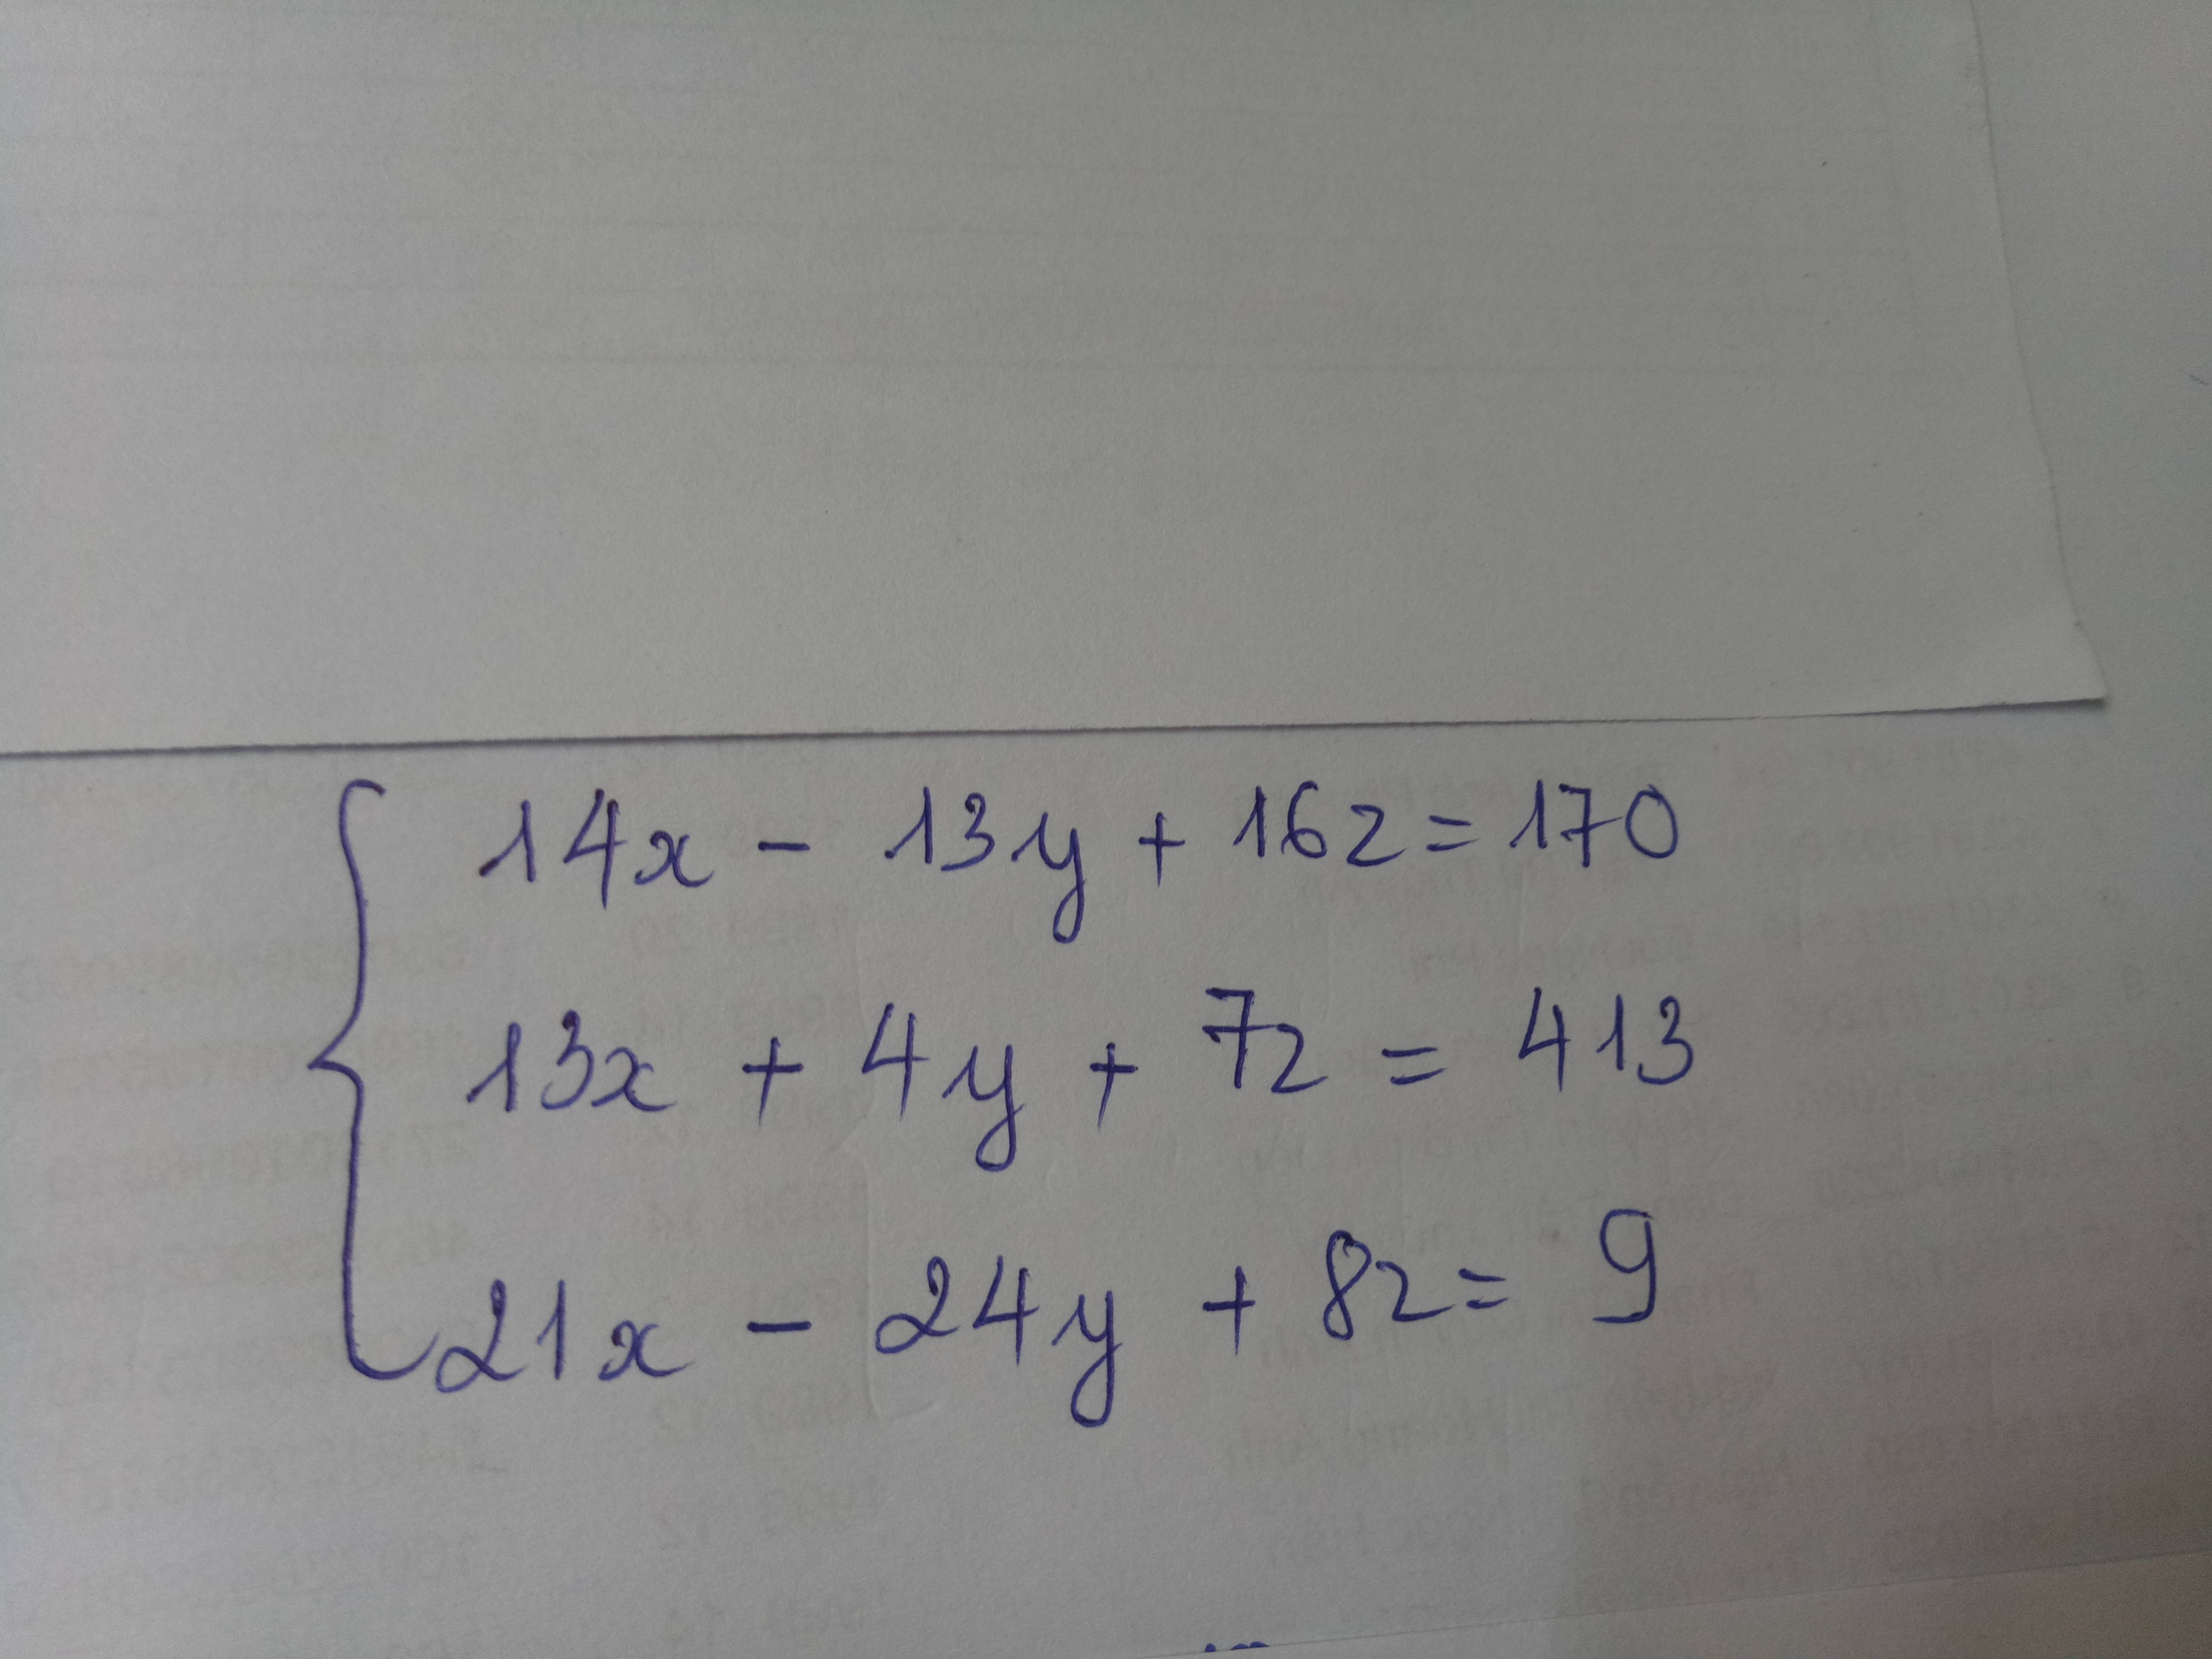 14x - 13y + 16z = 170
13x + 4y + 7z = 413
21x - 24y + 8z = 9